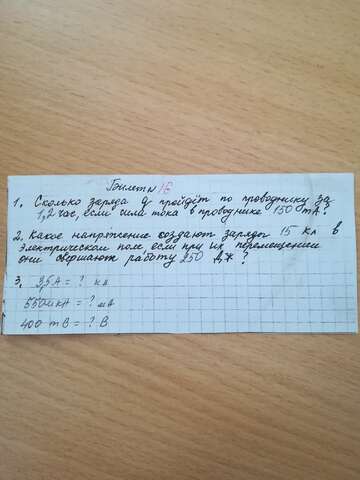 Билет N 16
1. Сколько заряда q пройдёт по проводнику за
1,2 час, если сила тока в проводнике 150 mA?
2. Какое напряжение создают заряды 15 кл в
электрическом поле если при их перемещении
они совершают работу 250 Дж?
3. 3,5A = ? кА
550мкА = ? мА
400 mB = ? B